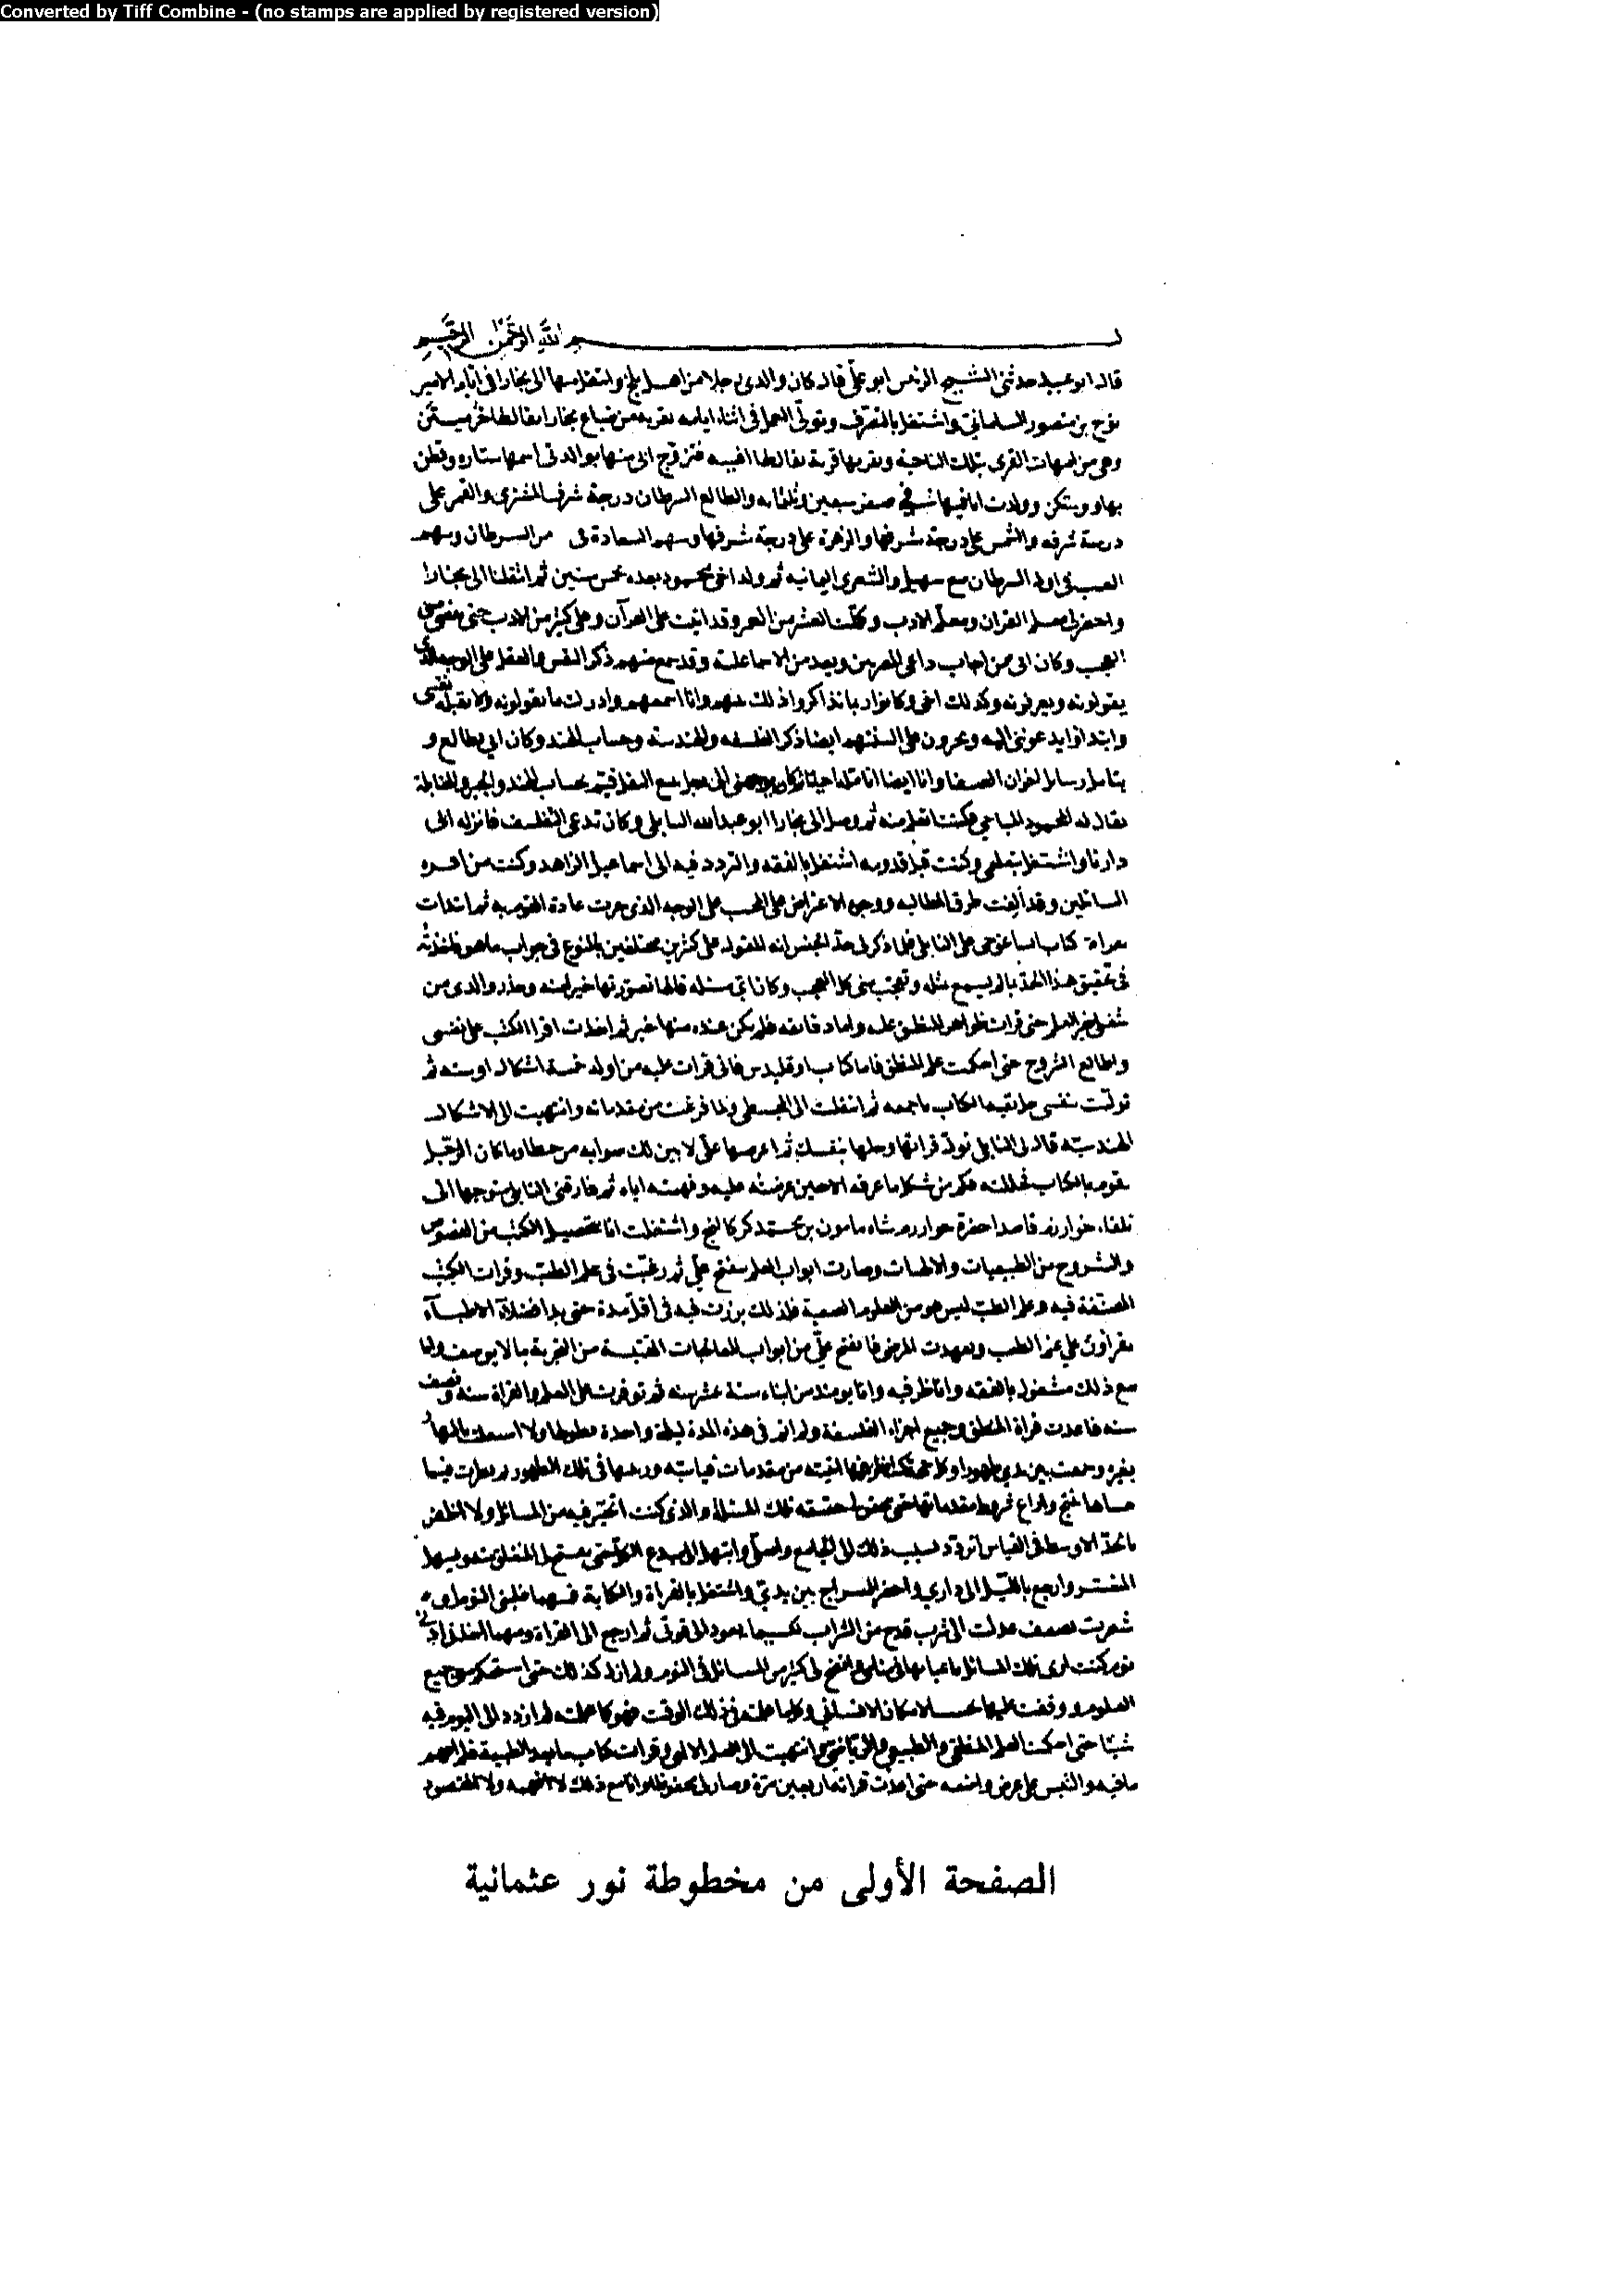 Converted by Tiff Combine - (no stamps are applied by registered version)
بسم الله الرحمن الرحيم
قال ابو عبيد حدثنى الشيخ الرئيس ابو على قال كان والدى رجلا من اهل بلخ وانتقل منها الى بخارا فى ايام الامير
نوح بن منصور السامانى واشتغل بالتصرف وتولى العمل فى اثناء ايامه بقرية من ضياع بخارا يقال لها خرميثن
وهى من امهات القرى بتلك الناحية وبقربها قرية يقال لها افشنه فتزوج ابى منها بوالدتى اسمها ستاره وقطن
بها وسكن وولدت انا فيها فى صفر سبعين وثلثمايه والطالع السرطان درجة شرف المشترى والقمر على
درجة شرفه والشمس على درجة شرفها والزهرة على درجة شرفها وسهم السعادة فى من السرطان وسهم
الغيب فى اول السرطان مع سهيل والشعرى اليمانيه ثم ولد اخى محمود بعده بخمس سنين ثم انتقلنا الى بخارا
واحضر لى معلم القران ومعلم الادب وكملت العشر من العمر وقد اتيت على القرآن وعلى كثير من الادب حتى يقضى منى
العجب وكان ابى ممن اجاب داعى المصريين ويعد من الاسماعيلية وقد سمع منهم ذكر النفس والعقل على الوجه الذى
يقولونه ويعرفونه وكذلك اخى وكانوا ربما تذاكروا ذلك بينهم وانا اسمعهم وادرك ما يقولونه ولا تقبله نفسى
وابتداوا يدعوننى اليه ويجرون على السنتهم ايضا ذكر الفلسفه والهندسة وحساب الهند وكان ابى يطالع و
يتامل رسائل اخوان الصفا وانا ايضا اتامله احيانا وكان يوجهنى الى رجل يبيع البقل قيم بحساب الهند والجبر والمقابلة
يقال له محمود المساحى فكنت اتعلم منه ثم وصل الى بخارا ابو عبد الله الناتلى وكان يدعى التفلسف فانزله ابى
دارنا واشتغل بتعلمى وكنت قبل قدومه اشتغل بالفقه والتردد فيه الى اسماعيل الزاهد وكنت من
السائلين وقد الفت طرق المطالبه ووجوه الاعتراض على المجيب على الوجه الذى جرت عادة القوم به ثم ابتدات
بقراءة كتاب ايساغوجى على الناتلى فلما ذكر لى حد الجنس انه المقول على كثيرين مختلفين بالنوع فى جواب ما هو فاخذته
فى تحقيق هذا الحد بما لم يسمع مثله وتعجب منى كل العجب وكان اى مسئله قالها تصورتها خيرا منه وحذر والدى من
شغلى بغير العلم حتى قرات ظواهر المنطق عليه واما دقايقه فلم يكن عنده منها خبر ثم اخذت اقرا الكتب على نفسى
واطالع الشروح حتى احكمت علم المنطق فاما كتاب اوقليدس فانى قرات عليه من اوله خمسة اشكال او سته ثم
توليت بنفسى حل بقيه الكتاب باجمعه ثم انتقلت الى المجسطى ولما فرغت من مقدماته وانتهيت الى الاشكال
الهندسيه قال لى الناتلى تول قراتها وحلها بنفسك ثم اعرضها على لابين لك صوابه من خطاه وما كان الرجل
يقوم بالكتاب فحللته فكم من شكل ما عرفه الا حين عرضته عليه وفهمته اياه ثم فارقنى الناتلى متوجها الى
تلقاء خوارزم قاصدا حضرة خوارزم شاه مامون بن محمد كركانج واشتغلت انا بتحصيل الكتب من الفصوص
والشروح من الطبيعيات والالهيات وصارت ابواب العلم تنفتح على ثم رغبت فى علم الطب وقرات الكتب
المصنفة فيه وعلم الطب ليس هو من العلوم الصعبة فلذلك برزت فيه فى اقل مدة حتى بدا فضلاء الاطباء
يقراون على علم الطب وتعهدت المرضى فانفتح على من ابواب المعالجات المقتبسة من التجربة ما لا يوصف وانا
مع ذلك مشغول بالفقه واناظر فيه وانا يومئذ من ابناء ستة عشر سنه ثم توفرت على العلم والقراة سنه ونصف
سنه فاعدت قراة المنطق وجميع اجزاء الفلسفة ولم انم فى هذه المدة ليلة واحدة بطولها ولا اشتغلت بالنهار
بغيره وجمعت بين يدى ظهورا وكل حجة انظر فيها اثبته من مقدمات قياسيه ورتبتها فى تلك الظهور ثم نظرت فيما
عساها تنتج واراع شروط مقدماتها حتى تحقق لى حقيقه تلك المسئله والذى كنت اتحير فيه من المسائل ولا اظفر
بالحد الاوسط فى القياس اتردد بسبب ذلك الى الجامع واصلى وابتهل الى مبدع الكل حتى يفتح لى المنغلق منه ويسهل
المتعسر وارجع بالليل الى دارى واحضر السراج بين يدى واشتغل بالقراة والكتابة فمهما غلبنى النوم او
شعرت بضعف عدلت الى شرب قدح من الشراب لكيما يعود الى قوتى ثم ارجع الى القراءة ومهما اخذنى ادنى
نوم كنت ارى تلك المسائل باعيانها فى منامى واتضح لى كثير من المسائل فى النوم ولم ازل كذلك حتى استحكم معى جميع
العلوم ووقفت عليها بحسب الامكان الانسانى وكلما علمته فى ذلك الوقت فهو كما علمته لم ازدد الى اليوم فيه
شيئا حتى احكمت العلم المنطقى والطبيعى والرياضى وانتهيت الى العلم الالهى وقرات كتاب ما بعد الطبيعة فلم افهم
ما فيه والتبس على غرض واضعه حتى اعدت قرائته اربعين مرة وصار لى محفوظا وانا مع ذلك لا افهمه ولا المقصود
الصفحة الأولى من مخطوطة نور عثمانية